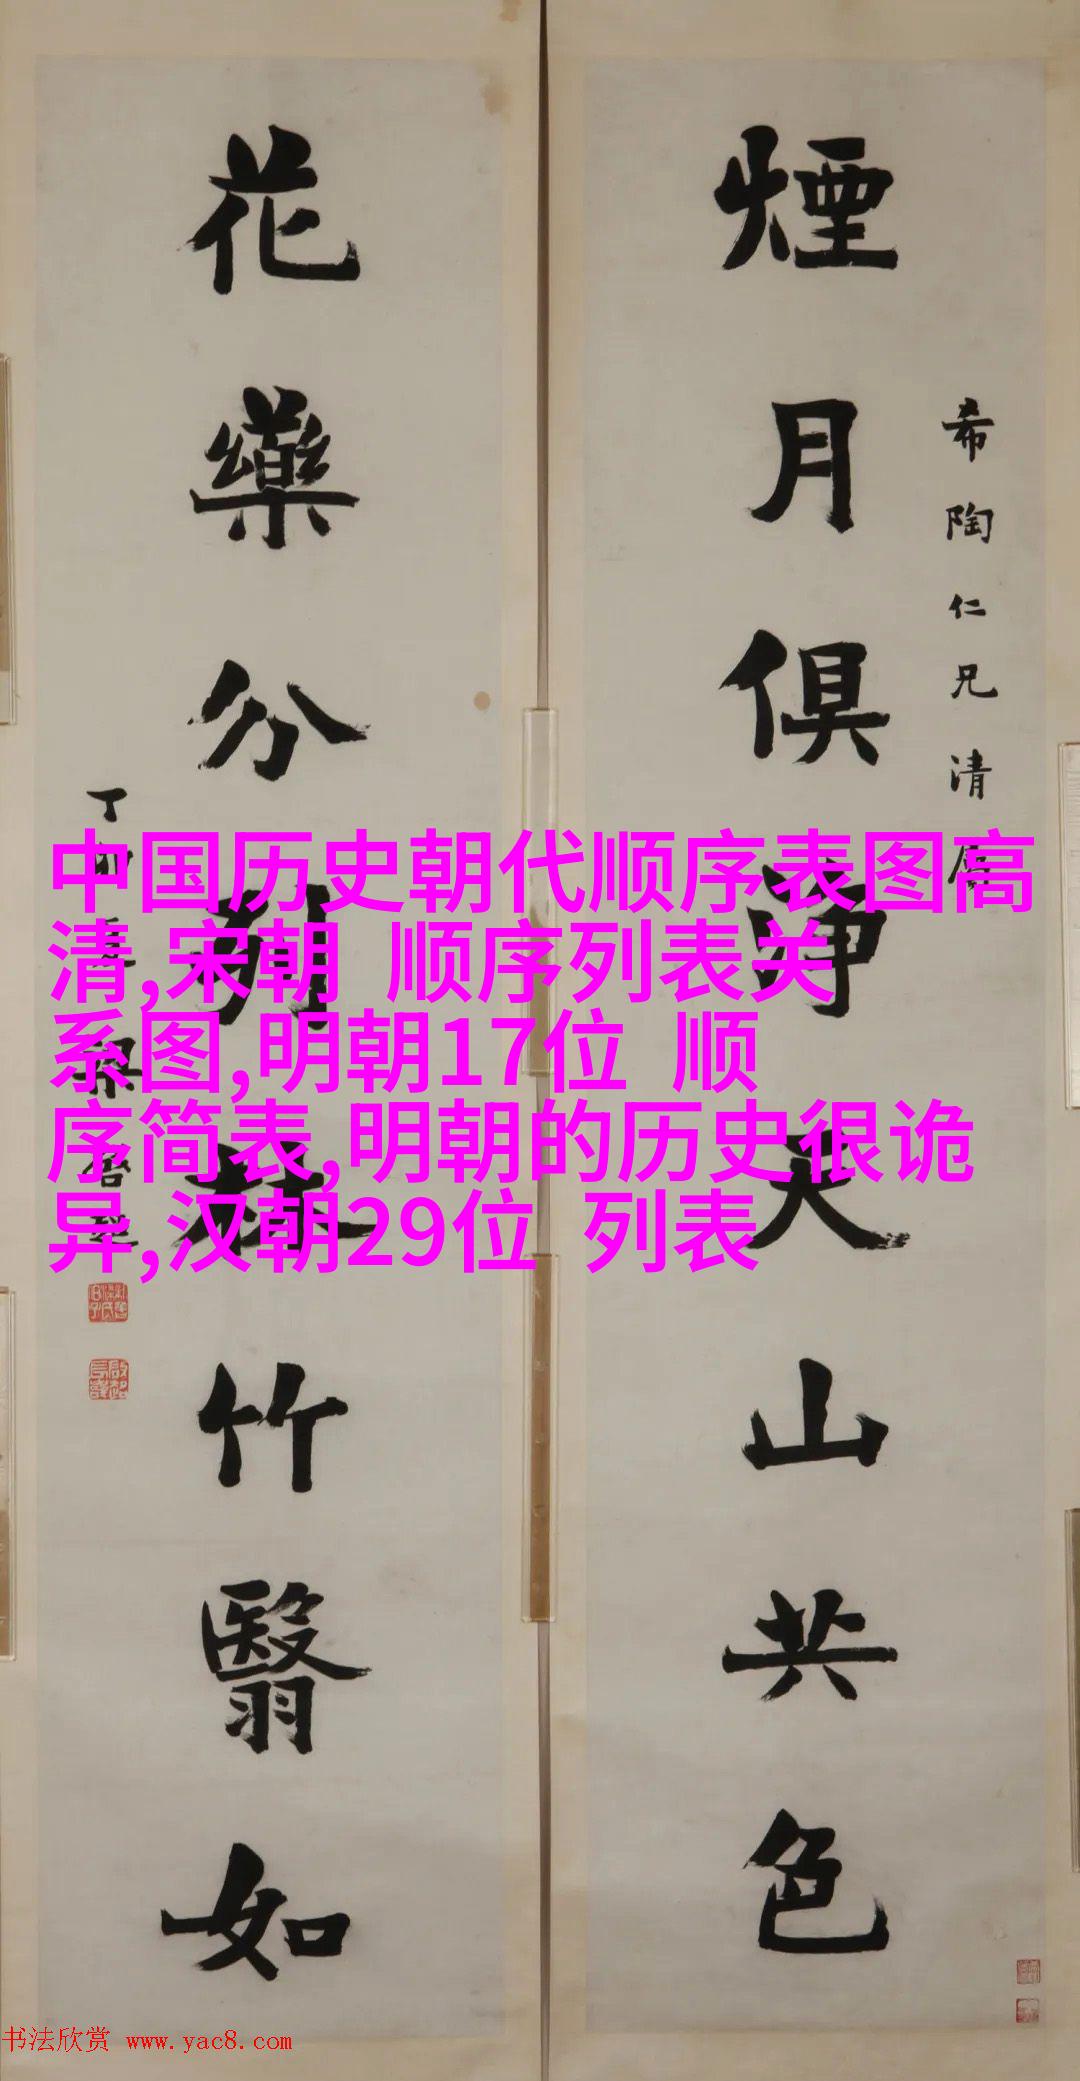 煙月俱淨天山共色
希陶仁兄清屬
花藥分列林竹翳如
丁卯 梁啓超
中国历史朝代顺序表图高
清,宋朝 顺序列表关
系图,明朝17位 顺
序简表,明朝的历史很诡
异,汉朝29位 列表
书法欣赏 www.yac8.com